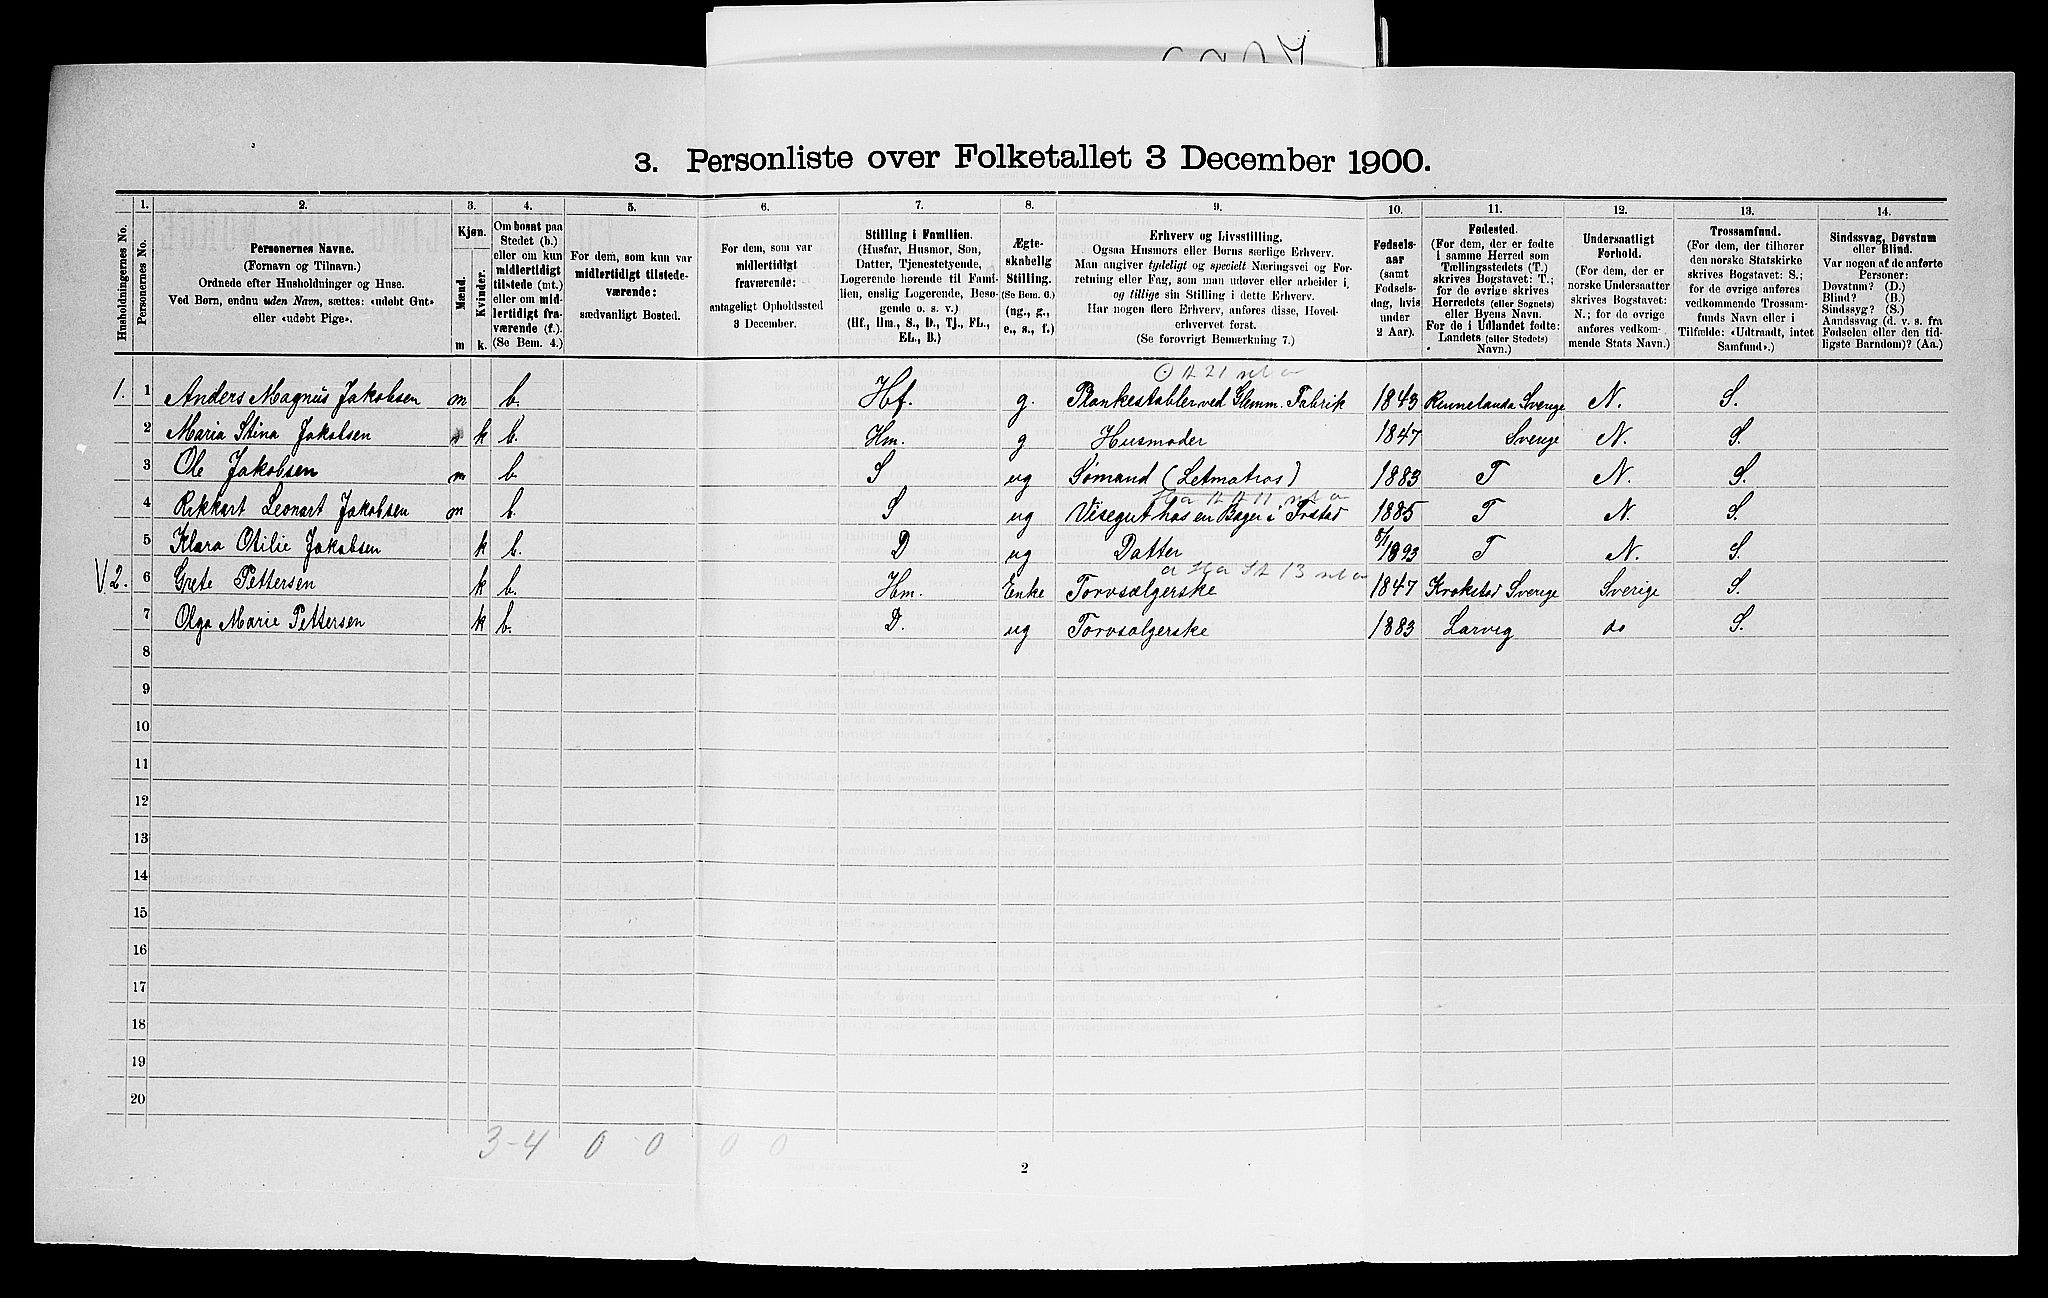 3. Personliste over Folketallet 3 December 1900.
Husholdningernes No.
1.
Personernes No.
2.
Personernes Navne.
(Fornavn og Tilnavn.)
Ordnede efter Husholdninger og Huse.
Ved Børn, endnu uden Navn, sættes: «udøbt Gut»
eller «udøbt Pige».
3.
Kjøn.
Mænd.
Kvinder.
m k.
4.
Om bosat paa
Stedet (b.)
eller om kun
midlertidigt
tilstede (mt.)
eller om mid-
lertidigt fra-
værende (f.).
(Se Bem. 4.)
5.
For dem, som kun var
midlertidigt tilstede-
værende:
sædvanligt Bosted.
6.
For dem, som var
midlertidigt
fraværende:
antageligt Opholdssted
3 December.
7.
Stilling i Familien.
(Husfar, Husmor, Søn,
Datter, Tjenestetyende,
Logerende hørende til Fami-
lien, enslig Logerende, Besø-
gende o. s. v.)
(Hf., Hm., S., D., Tj., FL.,
EL., B.)
8.
Ægte-
skabelig
Stilling.
(Se Bem. 6.)
(ug., g.,
e., s., f.)
9.
Erhverv og Livsstilling.
Ogsaa Husmors eller Børns særlige Erhverv.
Man angiver tydeligt og specielt Næringsvei og For-
retning eller Fag, som man udøver eller arbeider i,
og tillige sin Stilling i dette Erhverv.
Har nogen flere Erhverv, anføres disse, Hoved-
erhvervet først.
(Se forøvrigt Bemerkning 7.)
10.
Fødsels-
aar
(samt
Fødsels-
dag, hvis
under
2 Aar).
11.
Fødested.
(For dem, der er fødte
i samme Herred som
Tællingsstedets (T.)
skrives Bogstavet: T.;
for de øvrige skrives
Herredets (eller Sognets)
eller Byens Navn.
For de i Udlandet fødte:
Landets (eller Stedets)
Navn.)
12.
Undersaatligt
Forhold.
(For dem, der er
norske Undersaatter
skrives Bogstavet:
N.; for de øvrige
anføres vedkom-
mende Stats Navn.)
13.
Trossamfund.
(For dem, der tilhører
den norske Statskirke
skrives Bogstavet: S.;
for de øvrige anføres
vedkommende Trossam-
funds Navn eller i
Tilfælde: «Udtraadt, intet
Samfund».)
14.
Sindssvag, Døvstum
eller Blind.
Var nogen af de anførte
Personer:
Døvstum? (D.)
Blind? (B.)
Sindssyg? (S.)
Aandssvag (d. v. s. fra
Fødselen eller den tid-
ligste Barndom)? (Aa.)
1. 1 Anders Magnus Jakobsen m b. Hf. g. Plankestabler ved Glemm. Fabrik 1843 Rennelanda Sverige N. S.
2 Maria Stina Jakobsen k b. Hm. g Husmoder 1847 Sverige N. S.
3 Ole Jakobsen m b. S ug Sømand (Letmatros) 1883 T N. S.
4 Rikkart Leonart Jakobsen m b. S ug Visegut hos en Bager i Frstad 1885 T N. S.
5 Klara Otilie Jakobsen k b. D ug Datter 5/1 1893 T N. S.
V 2. 6 Grete Pettersen k b. Hm. Enke Torvsælgerske 1847 Krokstad Sverige Sverige S.
7 Olga Marie Pettersen k b. D. ug Torvsælgerske 1883 Larvig do S.
8
9
10
11
12
13
14
15
16
17
18
19
20
3-4 0 0 0 0
2